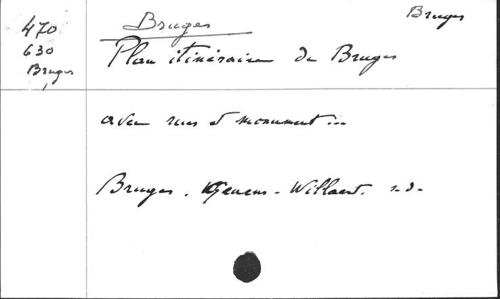 470
630
Bruges
Bruges
Bruges
Plan itinéraire de Bruges
avec rues et monument...
Bruges. Geuens-Willaert. s.d.